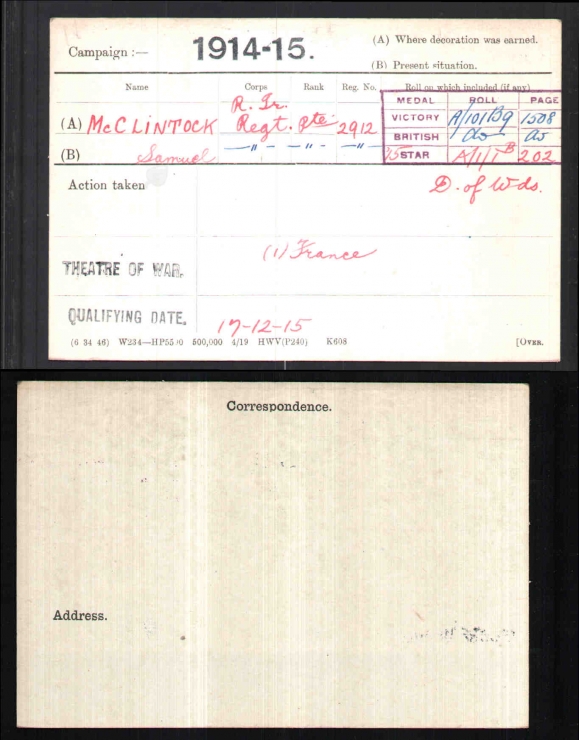 Campaign :— 1914-15. (A) Where decoration was earned.
(B) Present situation.
Name Corps Rank Reg. No. Roll on which included (if any)
MEDAL ROLL PAGE
R. Ir.
(A) McCLINTOCK Regt. Pte 2912
VICTORY A/101B9 1508
BRITISH do do
(B) Samuel —"— —"— —"—
15 STAR A/1/1B 202
Action taken D. of Wds.
(1) France
THEATRE OF WAR.
QUALIFYING DATE. 17-12-15
(6 34 46) W234—HP5590 500,000 4/19 HWV(P240) K608 [OVER.
Correspondence.
Address.